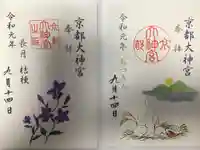 京都大神宮
奉拝
令和元年
長月 桔梗
九月十四日
京都大神宮
奉拝
令和元年
九月十四日